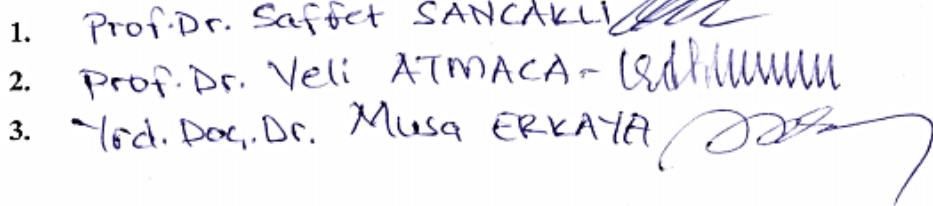 1. Prof.Dr. Saffet SANCAKLI
2. Prof.Dr. Veli ATMACA-
3. Yrd.Doç.Dr. Musa ERKAYA